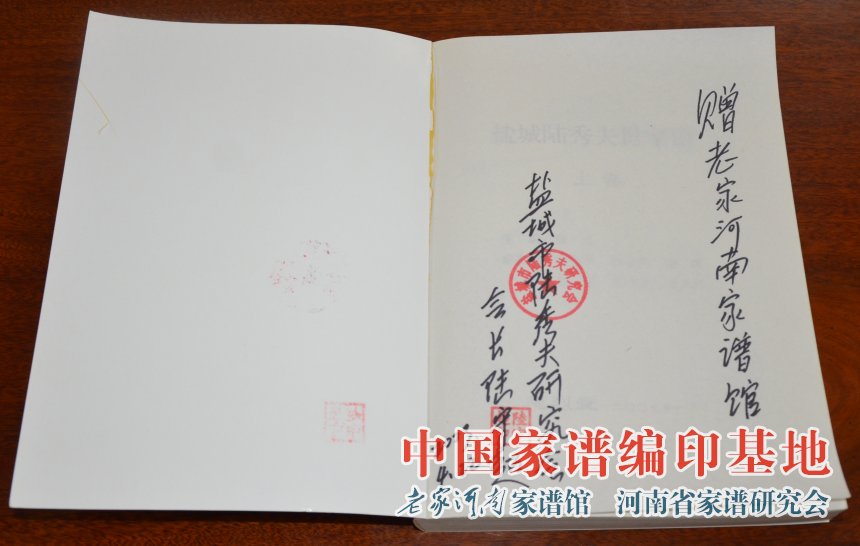 赠老家河南家谱馆
盐城市陆秀夫研究会
会长陆
盐城市陆秀夫研究会
中国家谱编印基地
老家河南家谱馆 河南省家谱研究会